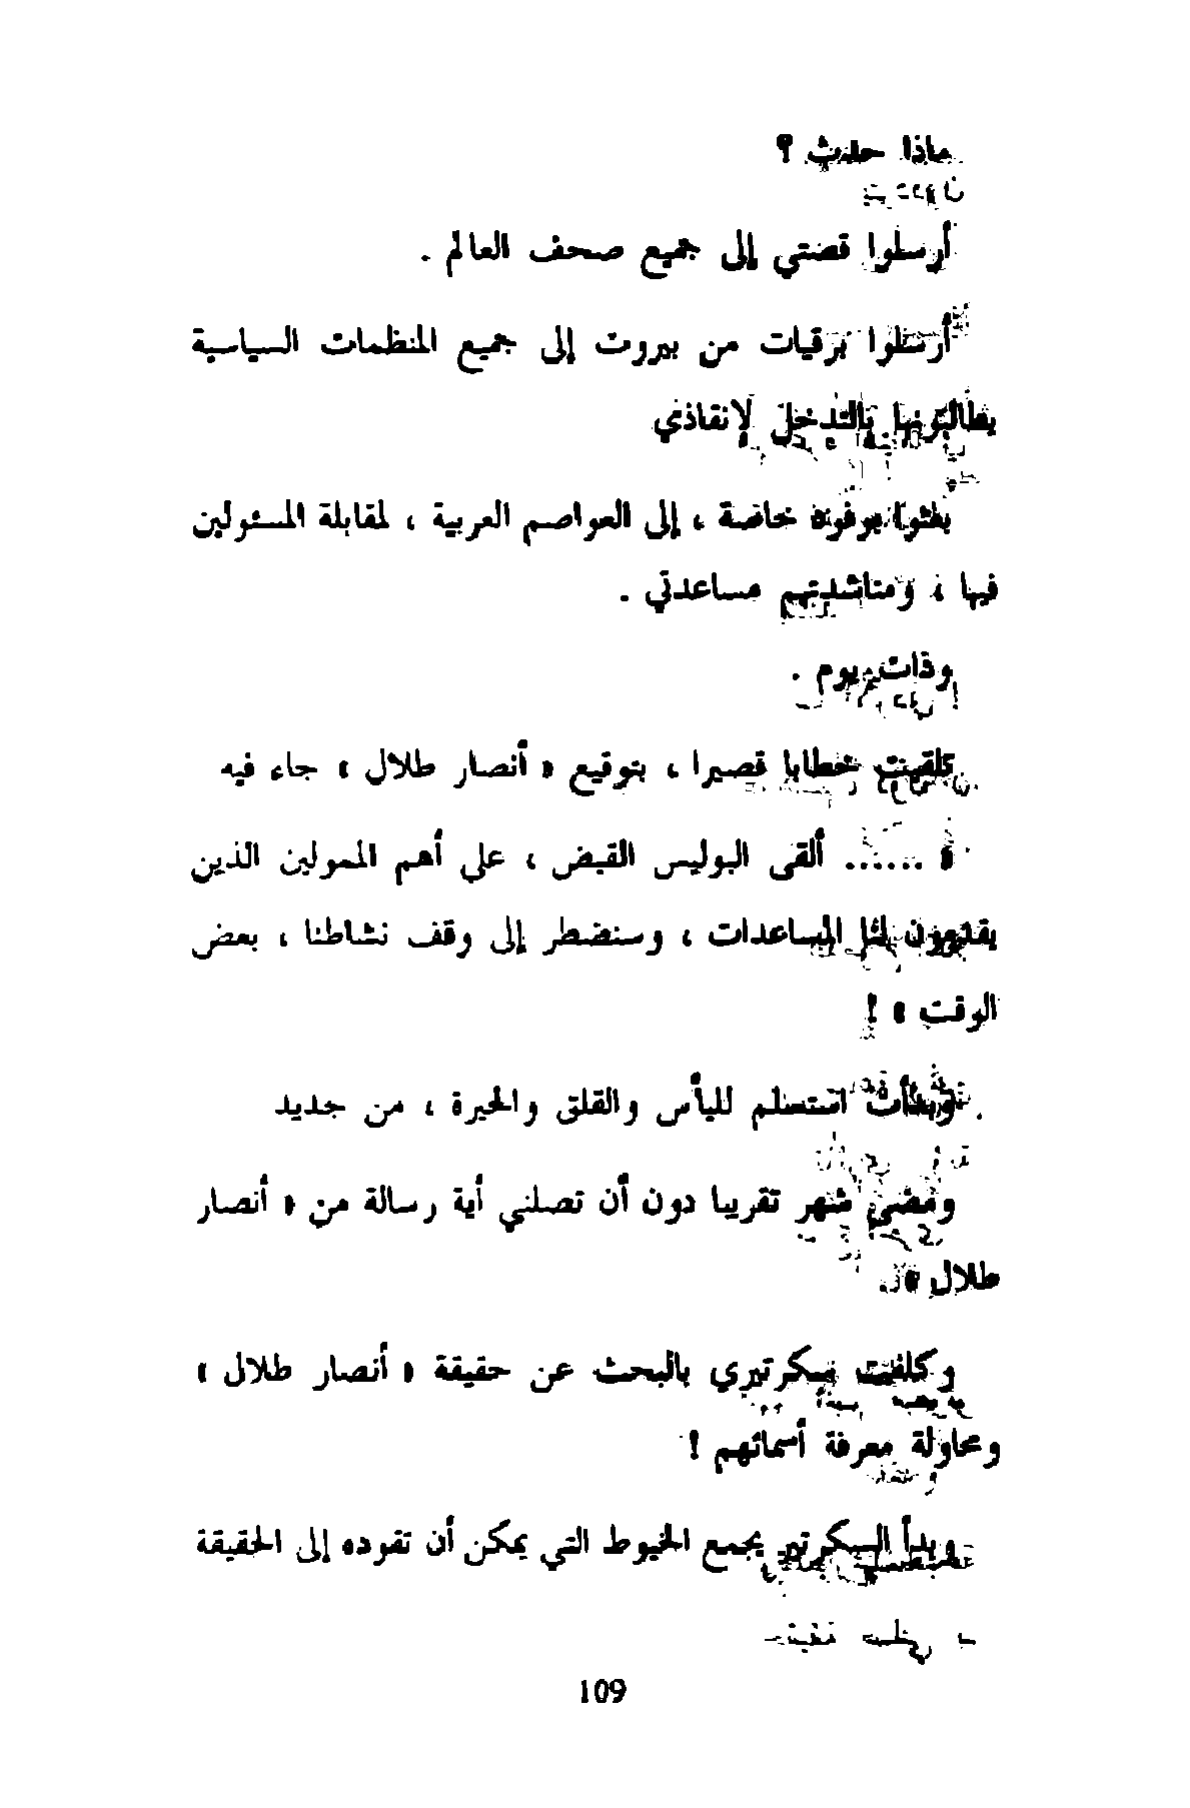 ماذا حدث ؟
أرسلوا قضتي إلى جميع صحف العالم .
أرسلوا برقيات من بيروت إلى جميع المنظمات السياسية
يطالبونها بالتدخل لإنقاذي
بعثوا بوفود خاصة ، إلى العواصم العربية ، لمقابلة المسئولين
فيها ، ومناشدتهم مساعدتي .
وذات يوم .
تلقيت خطابا قصيرا ، بتوقيع « أنصار طلال » جاء فيه
« ...... ألقى البوليس القبض ، على أهم الممولين الذين
يقدمون لنا المساعدات ، وسنضطر إلى وقف نشاطنا ، بعض
الوقت » !
وبدأت استسلم لليأس والقلق والحيرة ، من جديد
ومضى شهر تقريبا دون أن تصلني أية رسالة من « أنصار
طلال » .
وكلفت سكرتيري بالبحث عن حقيقة « أنصار طلال »
ومحاولة معرفة أسمائهم !
وبدأ السكرتير يجمع الخيوط التي يمكن أن تقوده إلى الحقيقة
109